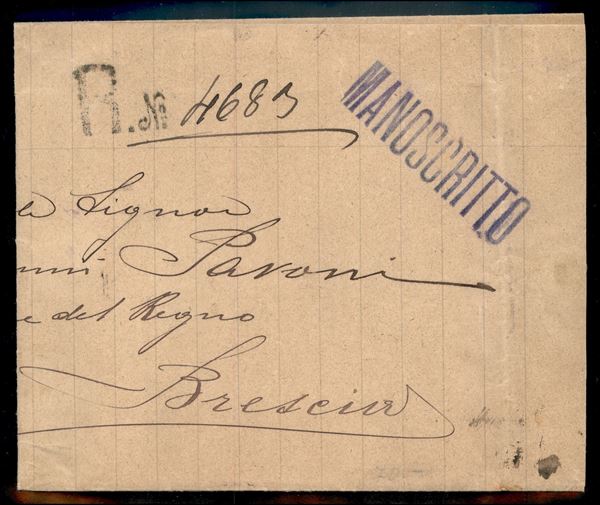 R. N° 4683
MANOSCRITTO
Signor
Pavoni
e del Regno
Brescia